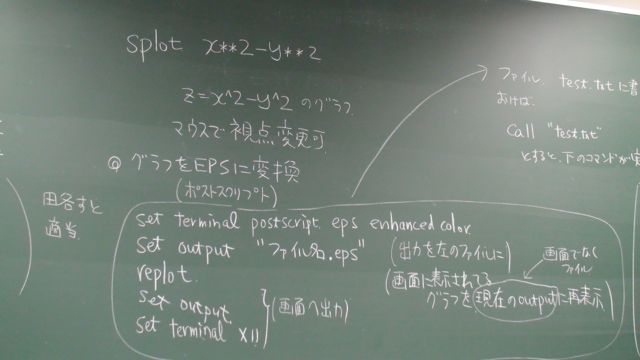 splot x**2-y**2
z=x^2-y^2 のグラフ
マウスで視点変更可
グラフをEPSに変換
(ポストスクリプト)
set terminal postscript eps enhanced color
set output "ファイル名.eps" (出力を左のファイルに)
replot (画面に表示されてる
グラフを現在のoutputに再表示)
画面でなく
ファイル
set output
set terminal x11
(画面へ出力)
ファイル test.txtに書
おけば
call "test.txt"
とすると、下のコマンドが実
略すと
適当